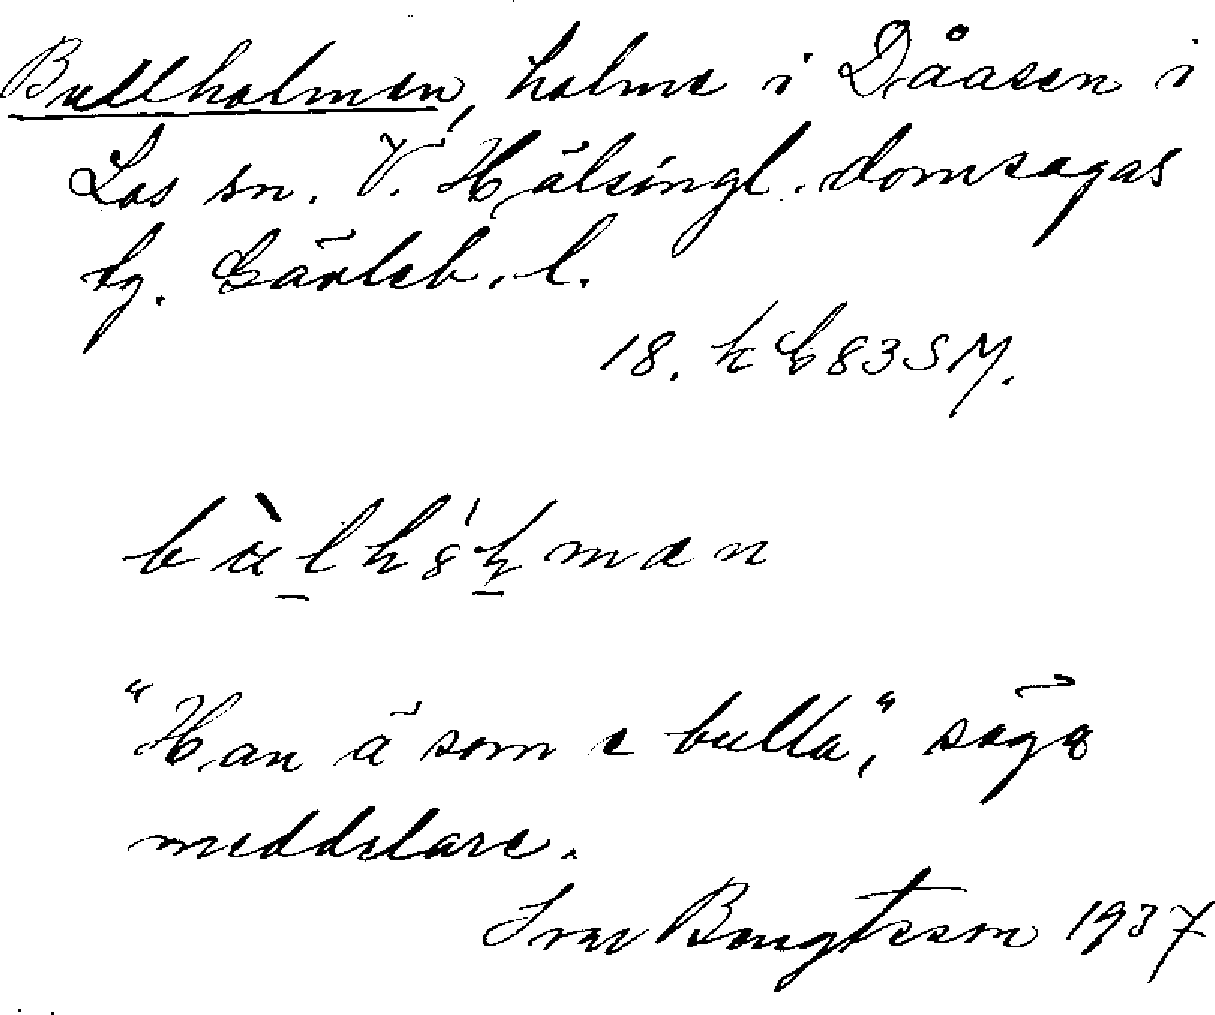 Bullholmen, holme i Dåasen i
Los sn. V. Hälsingl. domsagas
tg. Gävleb. l.
18. h G 83 SM.
"Han ä som e bulla", säga
meddelare.
Ivar Bengtsson 1937